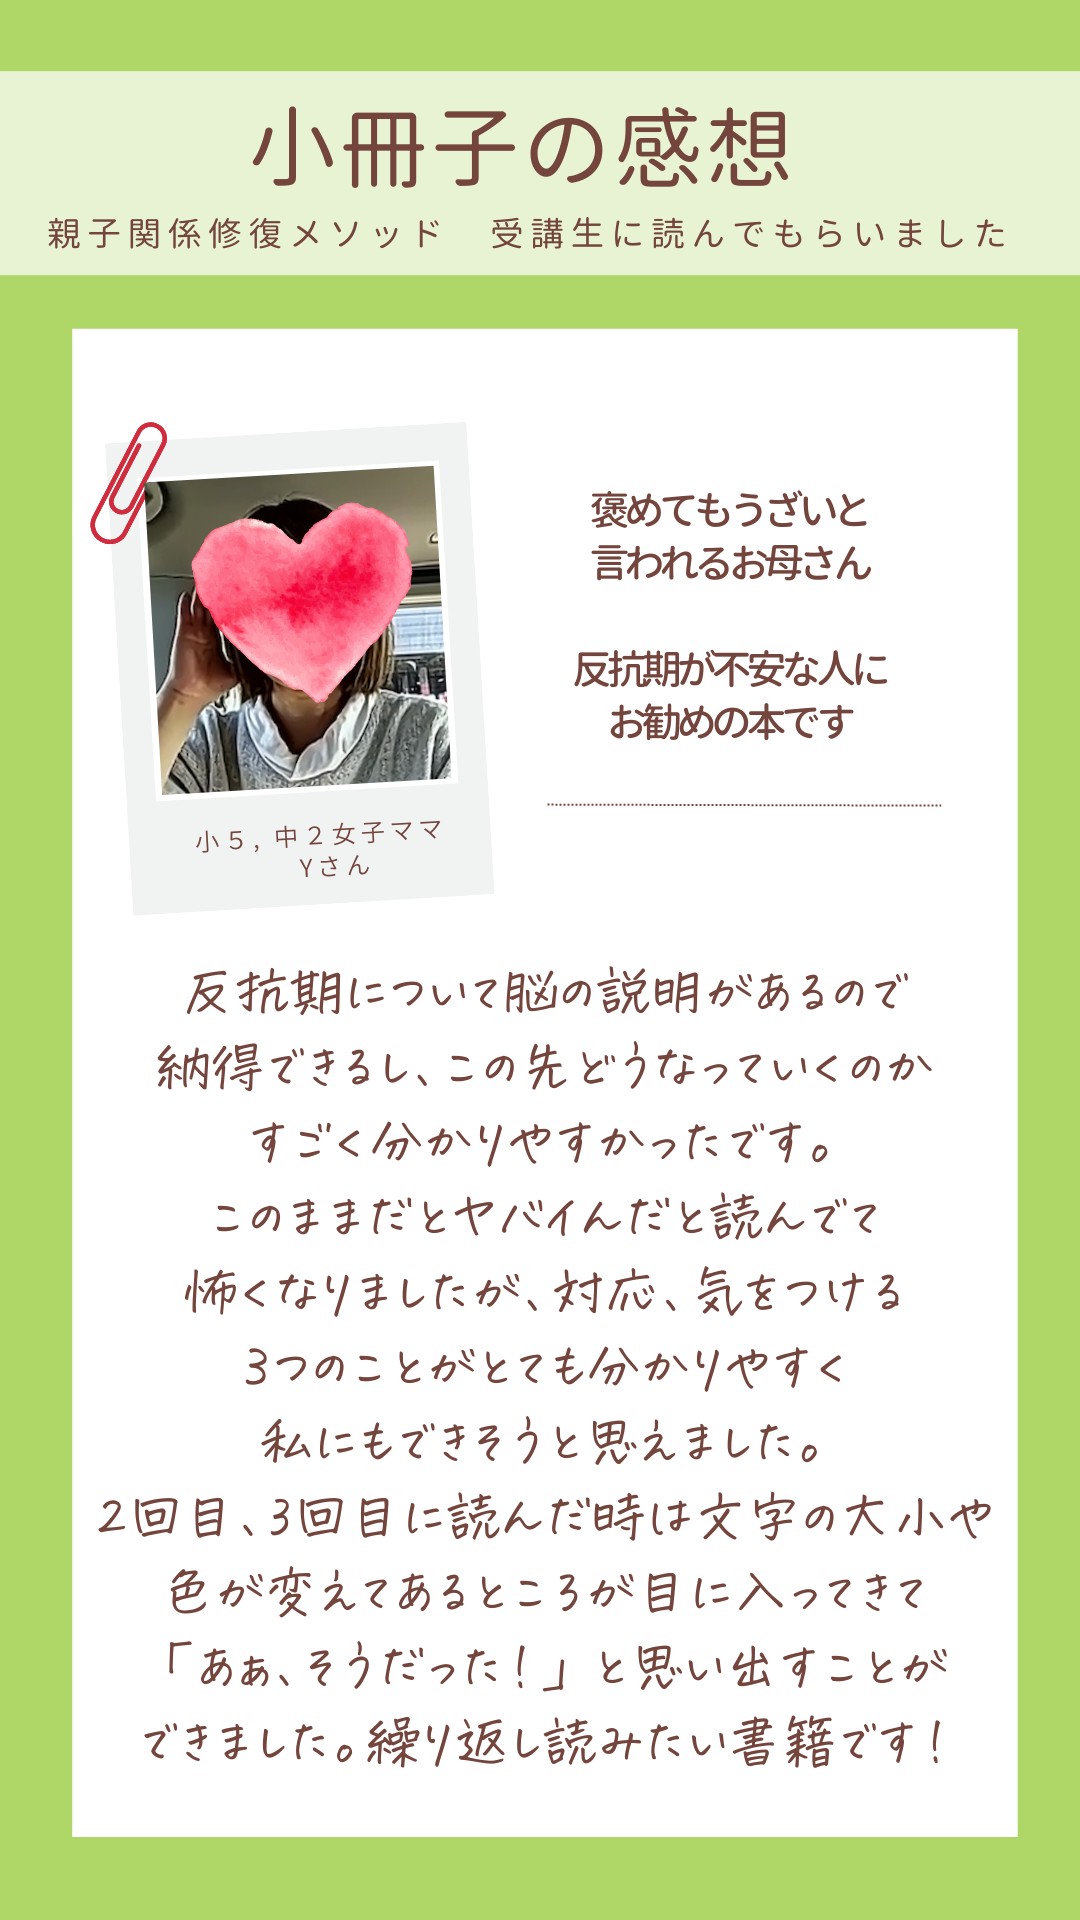 小冊子の感想
親子関係修復メソッド　受講生に読んでもらいました
褒めてもうざいと
言われるお母さん
反抗期が不安な人に
お勧めの本です
小５，中２女子ママ
Yさん
反抗期について脳の説明があるので
納得できるし、この先どうなっていくのか
すごく分かりやすかったです。
このままだとヤバイんだと読んでて
怖くなりましたが、対応、気をつける
3つのことがとても分かりやすく
私にもできそうと思えました。
2回目、3回目に読んだ時は文字の大小や
色が変えてあるところが目に入ってきて
「あぁ、そうだった！」と思い出すことが
できました。繰り返し読みたい書籍です！